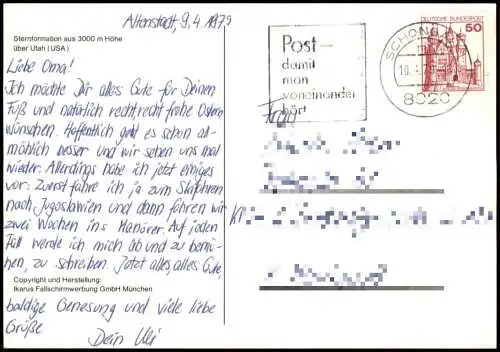 Altenstadt, 9.4.1979
Sternformation aus 3000 m Höhe
über Utah (USA)
Liebe Oma!
Ich möchte Dir alles Gute für Deinen
Fuß und natürlich recht, recht frohe Ostern
wünschen. Hoffentlich geht es schon all-
mählich besser und wir sehen uns mal
wieder. Allerdings habe ich jetzt einiges
vor: Zuerst fahre ich ja zum Skifahren
nach Jugoslawien und dann fahren wir
zwei Wochen ins Manöver. Auf jeden
Fall werde ich mich ab und zu bemü-
hen, zu schreiben. Jetzt alles, alles Gute,
Copyright und Herstellung:
Ikarus Fallschirmwerbung GmbH München
baldige Genesung und viele liebe
Grüße
Dein Uli
Post –
damit
man
voneinander
hört
SCHONGAU
8920
DEUTSCHE BUNDESPOST
50
Frau